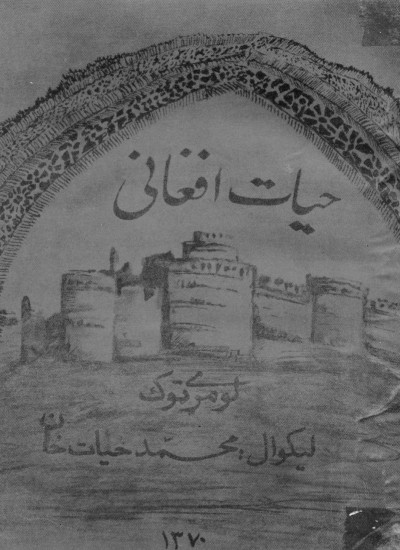 حیات افغانی
لومړی ټوک
لیکوال: محمد حیات خان
۱۳۷۰